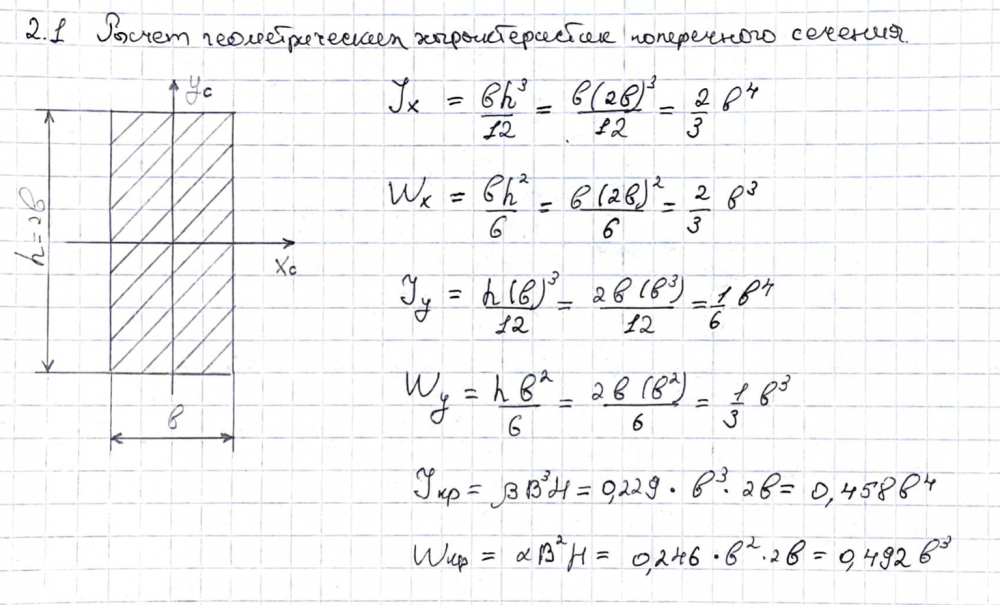 2.1 Расчет геометрических характеристик поперечного сечения.
yc
h=2в
xc
в
Jx = вh³/12 = в(2в)³/12 = 2/3 в⁴
Wx = вh²/6 = в(2в)²/6 = 2/3 в³
Jy = h(в)³/12 = 2в(в³)/12 = 1/6 в⁴
Wy = hв²/6 = 2в(в²)/6 = 1/3 в³
Jкр = βВ³H = 0,229 · в³ · 2в = 0,458в⁴
Wкр = αВ²H = 0,246 · в² · 2в = 0,492в³